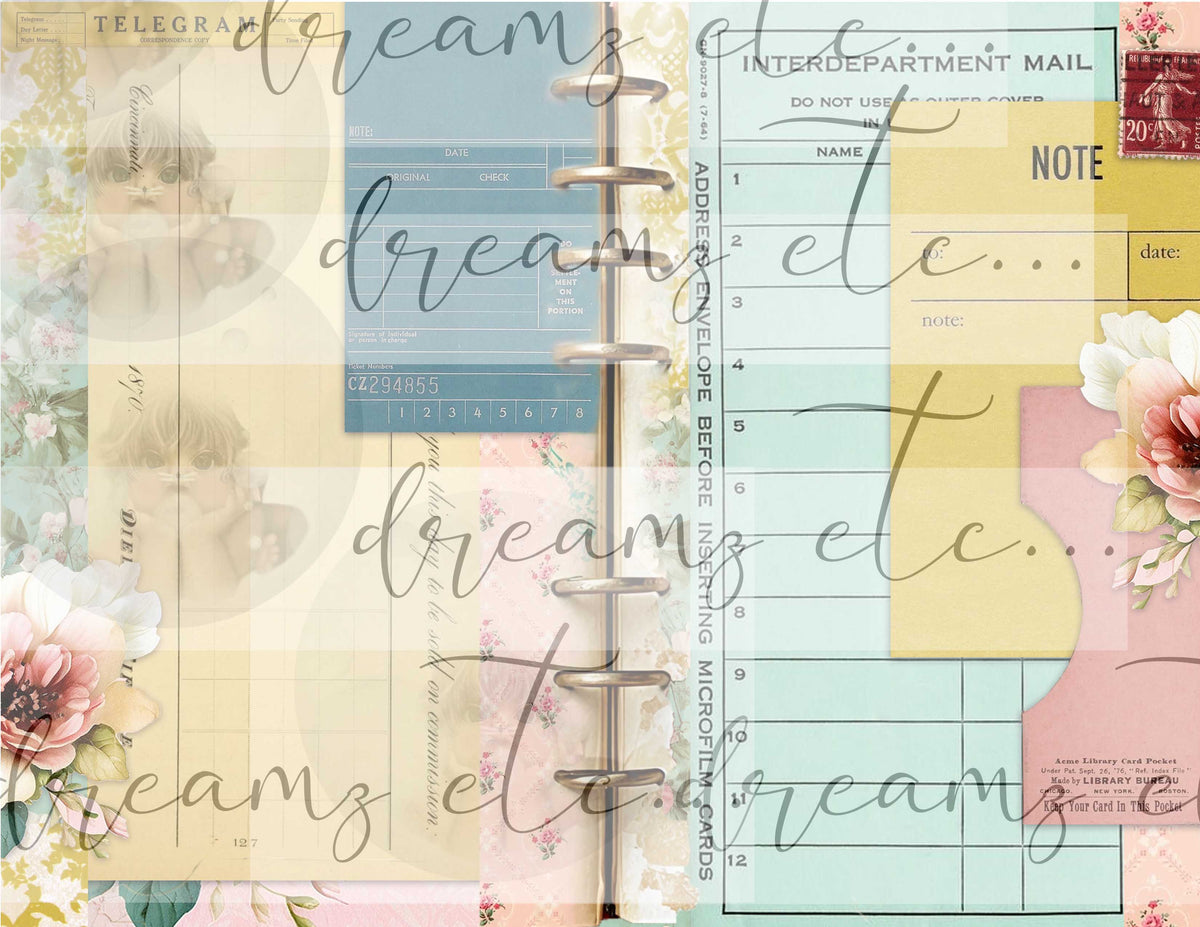 Telegram
Day Letter
Night Message
TELEGRAM
CORRESPONDENCE COPY
Time Filed
Cincinnati,
187
you this day to be sold on commission:
127
NOTE:
DATE
ORIGINAL CHECK
DO
SETTLE-
MENT
ON
THIS
PORTION
Signature of Individual
or person in charge
Ticket Numbers
CZ294855
1 2 3 4 5 6 7 8
dreamz etc...
dreamz etc...
dreamz etc...
dreamz etc...
dreamz et
ADDRESS ENVELOPE BEFORE INSERTING MICROFILM CARDS
INTERDEPARTMENT MAIL
DO NOT USE AS OUTER COVER
NAME
1
2
3
4
5
6
7
8
9
10
11
12
NOTE
to:
date:
note:
20c
Acme Library Card Pocket
Under Pat. Sept. 26, '76, "Ref. Index File"
Made by LIBRARY BUREAU
CHICAGO. NEW YORK. BOSTON.
Keep Your Card In This Pocket